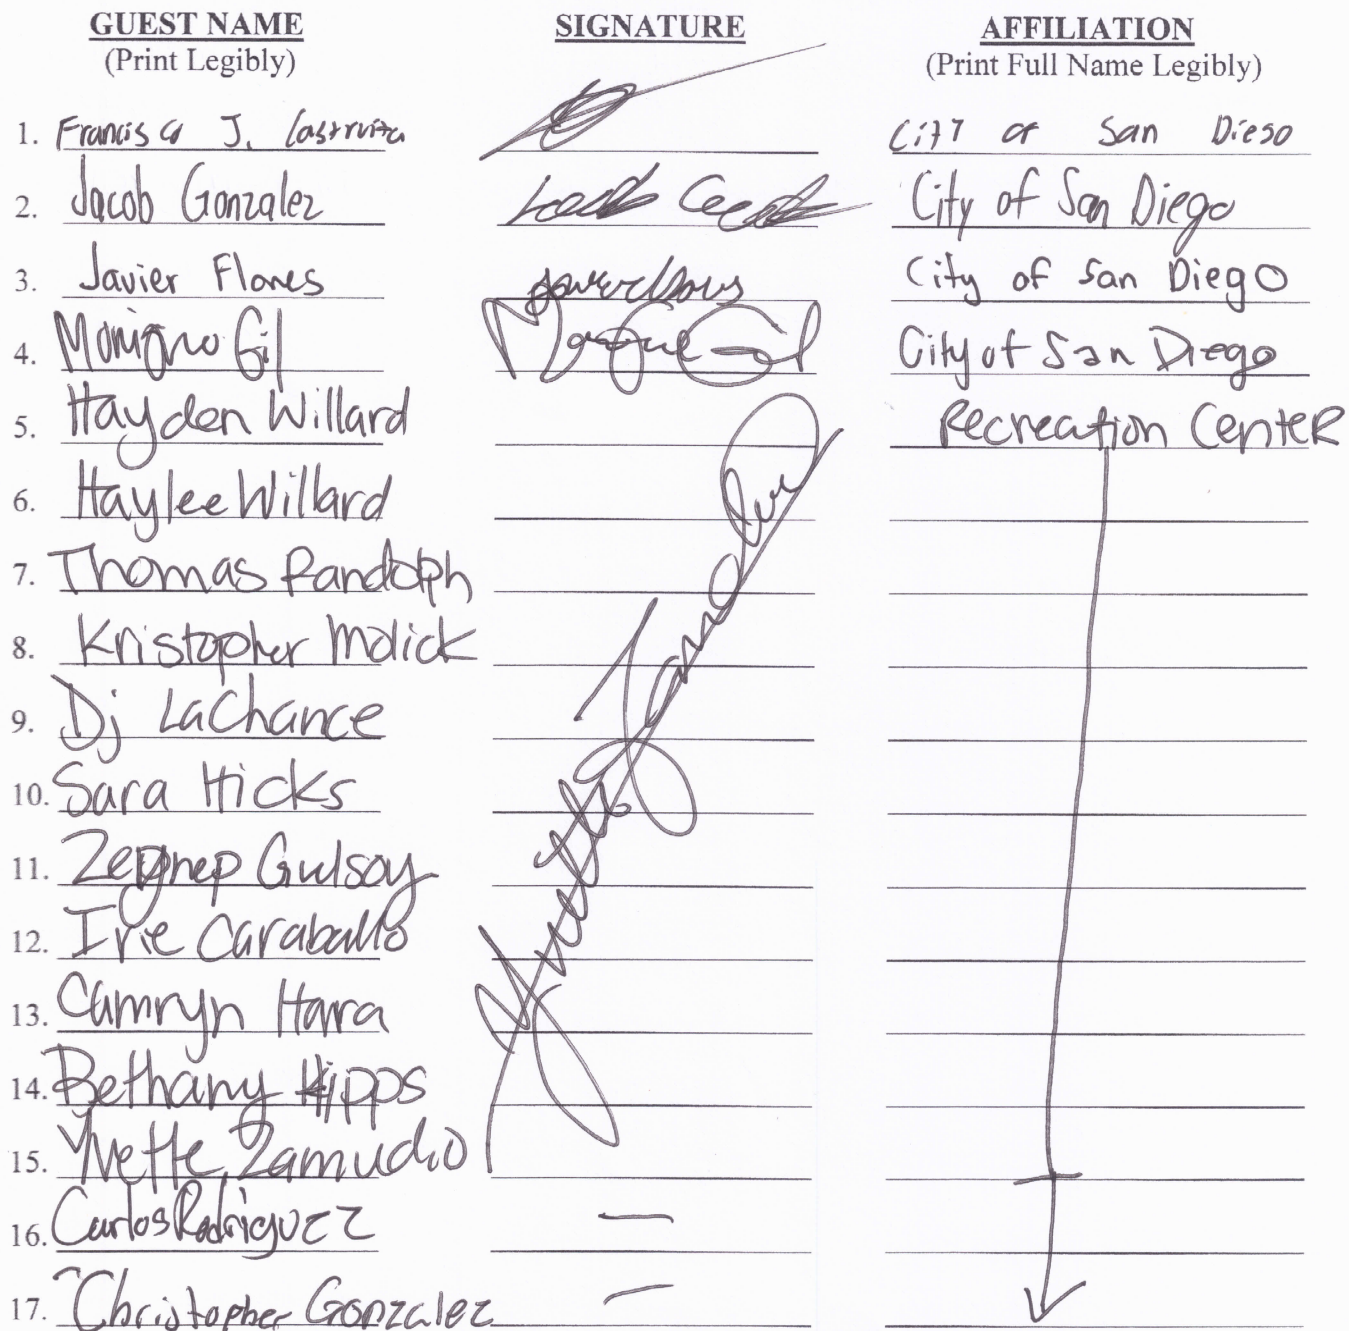 GUEST NAME SIGNATURE AFFILIATION
(Print Legibly) (Print Full Name Legibly)
1. Francisco J. Castruita City of San Diego
2. Jacob Gonzalez City of San Diego
3. Javier Flores City of San Diego
4. Gil City of San Diego
5. Hayden Willard Recreation Center
6. Haylee Willard
7. Thomas Randolph
8. Kristopher Malick
9. Dj LaChance
10. Sara Hicks
11. Zeynep Gulsoy
12. Irie Caraballo
13. Camryn Hara
14. Bethany Hipps
15. Yvette Zamudio Yvette Zamudio
16. Carlos Rodriguez —
17. Christopher Gonzalez —